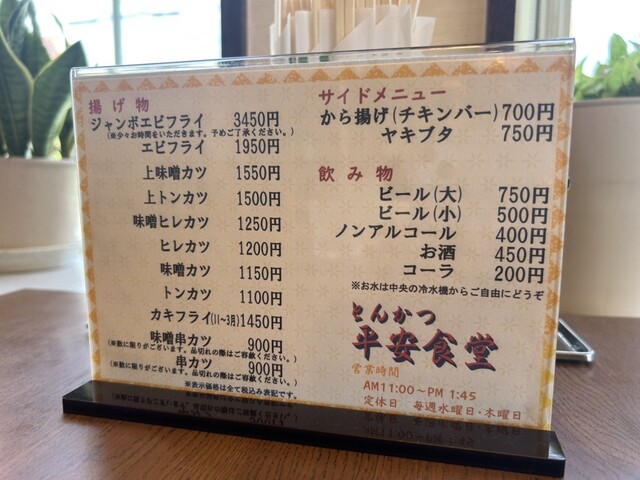 揚げ物
ジャンボエビフライ 3450円
(※少々お時間をいただきます。予めご了承ください。)
エビフライ 1950円
上味噌カツ 1550円
上トンカツ 1500円
味噌ヒレカツ 1250円
ヒレカツ 1200円
味噌カツ 1150円
トンカツ 1100円
カキフライ(11～3月) 1450円
味噌串カツ 900円
(※数に限りがございます。品切れの際はご容赦ください。)
串カツ 900円
(※数に限りがございます。品切れの際はご容赦ください。)
※表示価格は全て税込み表記です。
サイドメニュー
から揚げ(チキンバー) 700円
ヤキブタ 750円
飲み物
ビール(大) 750円
ビール(小) 500円
ノンアルコール 400円
お酒 450円
コーラ 200円
※お水は中央の冷水機からご自由にどうぞ
とんかつ
平安食堂
営業時間
AM11:00～PM 1:45
定休日 毎週水曜日・木曜日